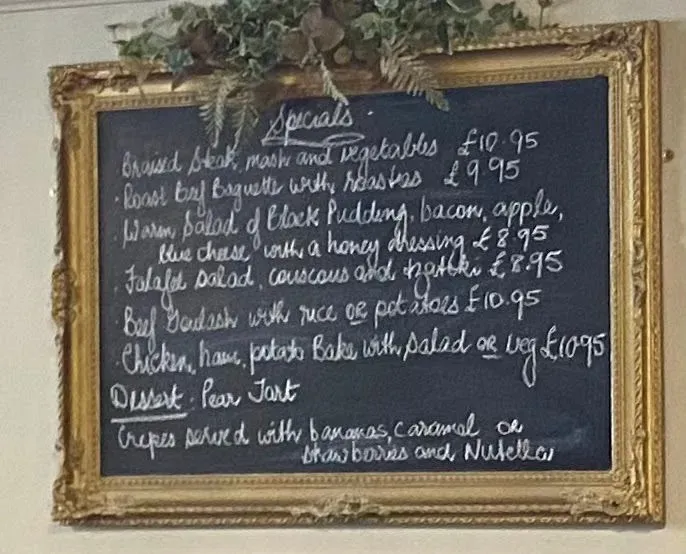 Specials.
Braised Steak, mash and vegetables £10.95
· Roast Beef Baguette with roasties £9.95
· Warm Salad of Black Pudding, bacon, apple,
blue cheese with a honey dressing £8.95
· Falafel salad, couscous and tzatziki £8.95
Beef Goulash with rice OR potatoes £10.95
· Chicken, ham, potato Bake with Salad OR veg £10.95
Dessert: Pear Tart
Crepes served with bananas, caramel OR
strawberries and Nutella